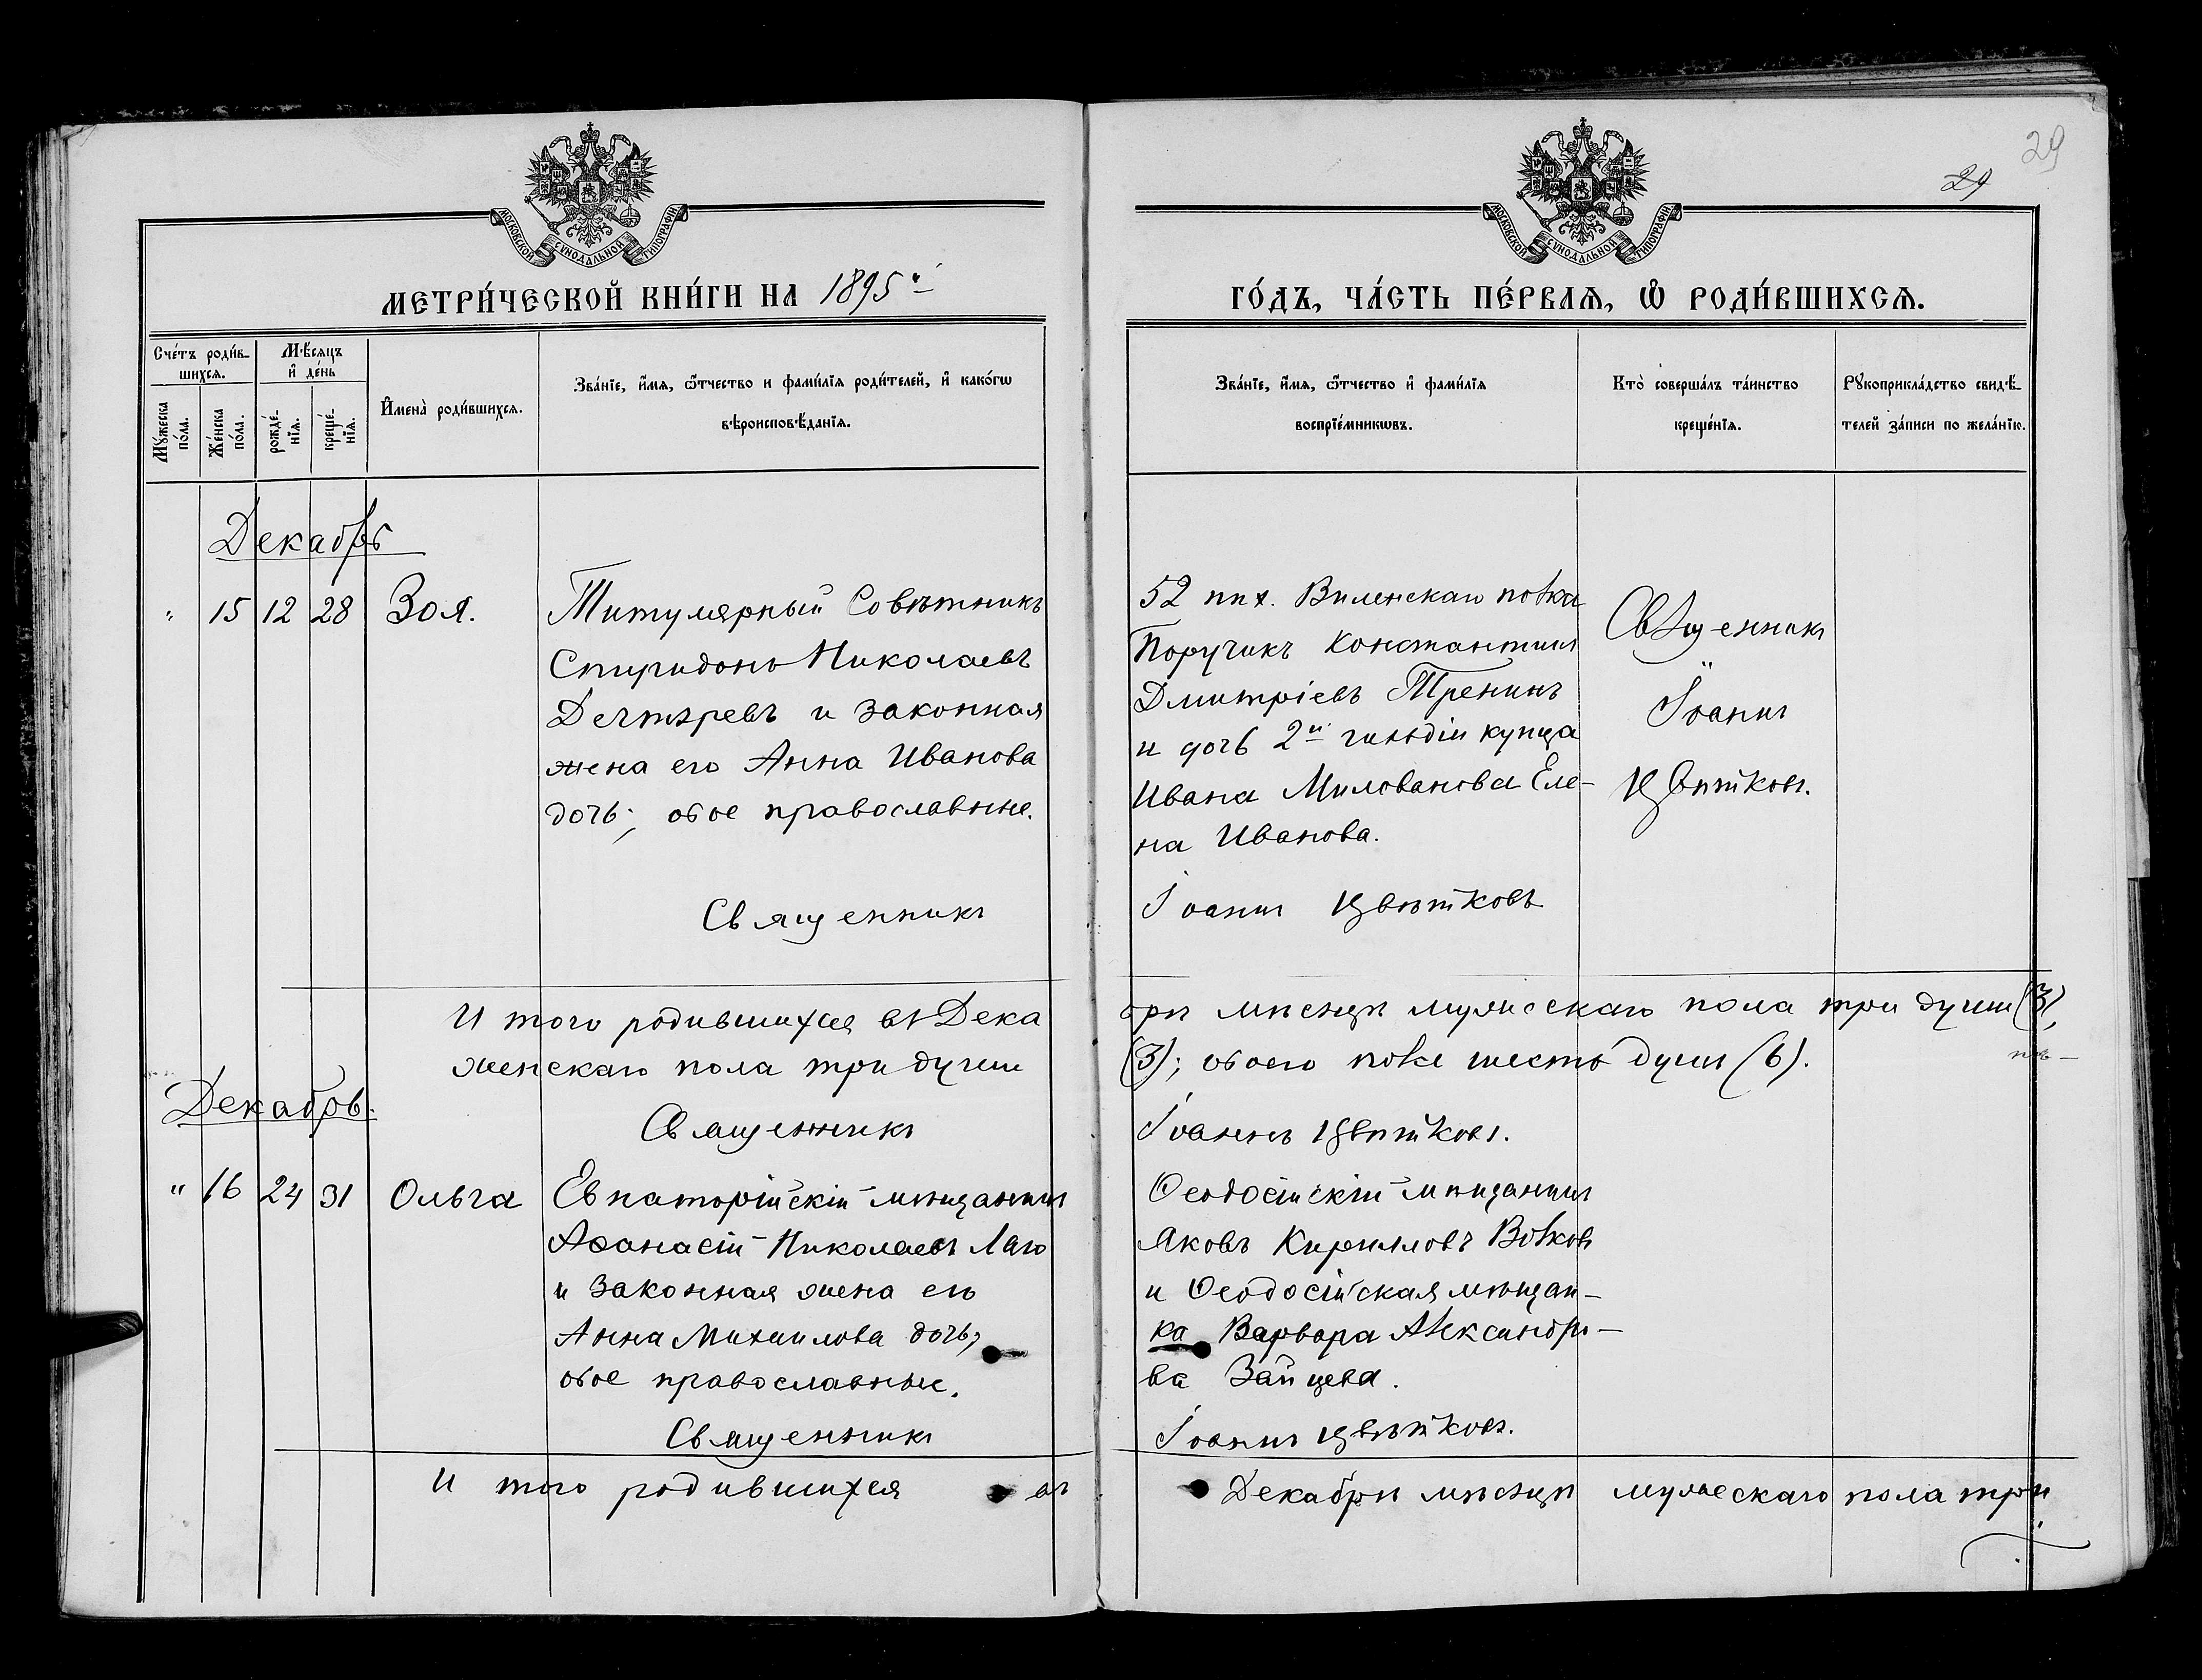 29
29
МОСКОВСКОЙ СУНОДАЛЬНОЙ ТИПОГРАФІИ.
МОСКОВСКОЙ СУНОДАЛЬНОЙ ТИПОГРАФІИ.
МЕТРИ́ЧЕСКОЙ КНИ́ГИ НА 1895й
ГО́ДЪ, ЧА́СТЬ ПЕ́РВАѦ, Ѡ РОДИ́ВШИХСѦ.
Сче́тъ роди́в-
шихсѧ.
Мѣ́сѧцъ
и де́нь
Му́жеска
по́ла.
Же́нска
по́ла.
рожде́-
нїѧ.
креще́-
нїѧ.
Имена̀ роди́вшихсѧ.
Зва́нїе, и́мѧ, ѻ҆́тчество и фами́лїѧ роди́телей, и како́гѡ
вѣроисповѣ́данїѧ.
Зва́нїе, и́мѧ, ѻ҆́тчество и фами́лїѧ
воспрїе́мникѡвъ.
Кто̀ соверша́лъ та́инство
креще́нїѧ.
Рꙋкоприкла́дство свидѣ́-
телей за́писи по жела́нїю.
Декабрь
" 15 12 28 Зоя.
Титулярный Совѣтникъ
Спиридонъ Николаевъ
и законная
жена его Анна Иванова
дочь; обое православные.
Священникъ
52 пѣх. Виленскаго полка
Поручикъ Константинъ
Дмитріевъ Тренинъ
и дочь 2й гильдіи купца
Ивана Милованова Еле-
на Иванова.
Іоаннъ Цвѣтковъ
Священникъ
Іоаннъ
Цвѣтковъ.
И того родившихся въ Дека
брѣ мѣсяцѣ мужескаго пола три души (3),
женскаго пола три души
(3); обоего пола шесть душъ (6).
Священникъ
Іоаннъ Цвѣтковъ.
Декабрь.
" 16 24 31 Ольга
Евпаторійскій мѣщанинъ
Аѳанасій Николаевъ
и законная жена его
Анна Михаилова дочь,
обое православные.
Священникъ
Ѳеодосійскій мѣщанинъ
Яковъ Кирилловъ Волковъ
и Ѳеодосійская мѣщан-
ка Варвара Александро-
ва Зайцева.
Іоаннъ Цвѣтковъ.
И того родившихся въ
Декабрѣ мѣсяцѣ мужескаго пола три